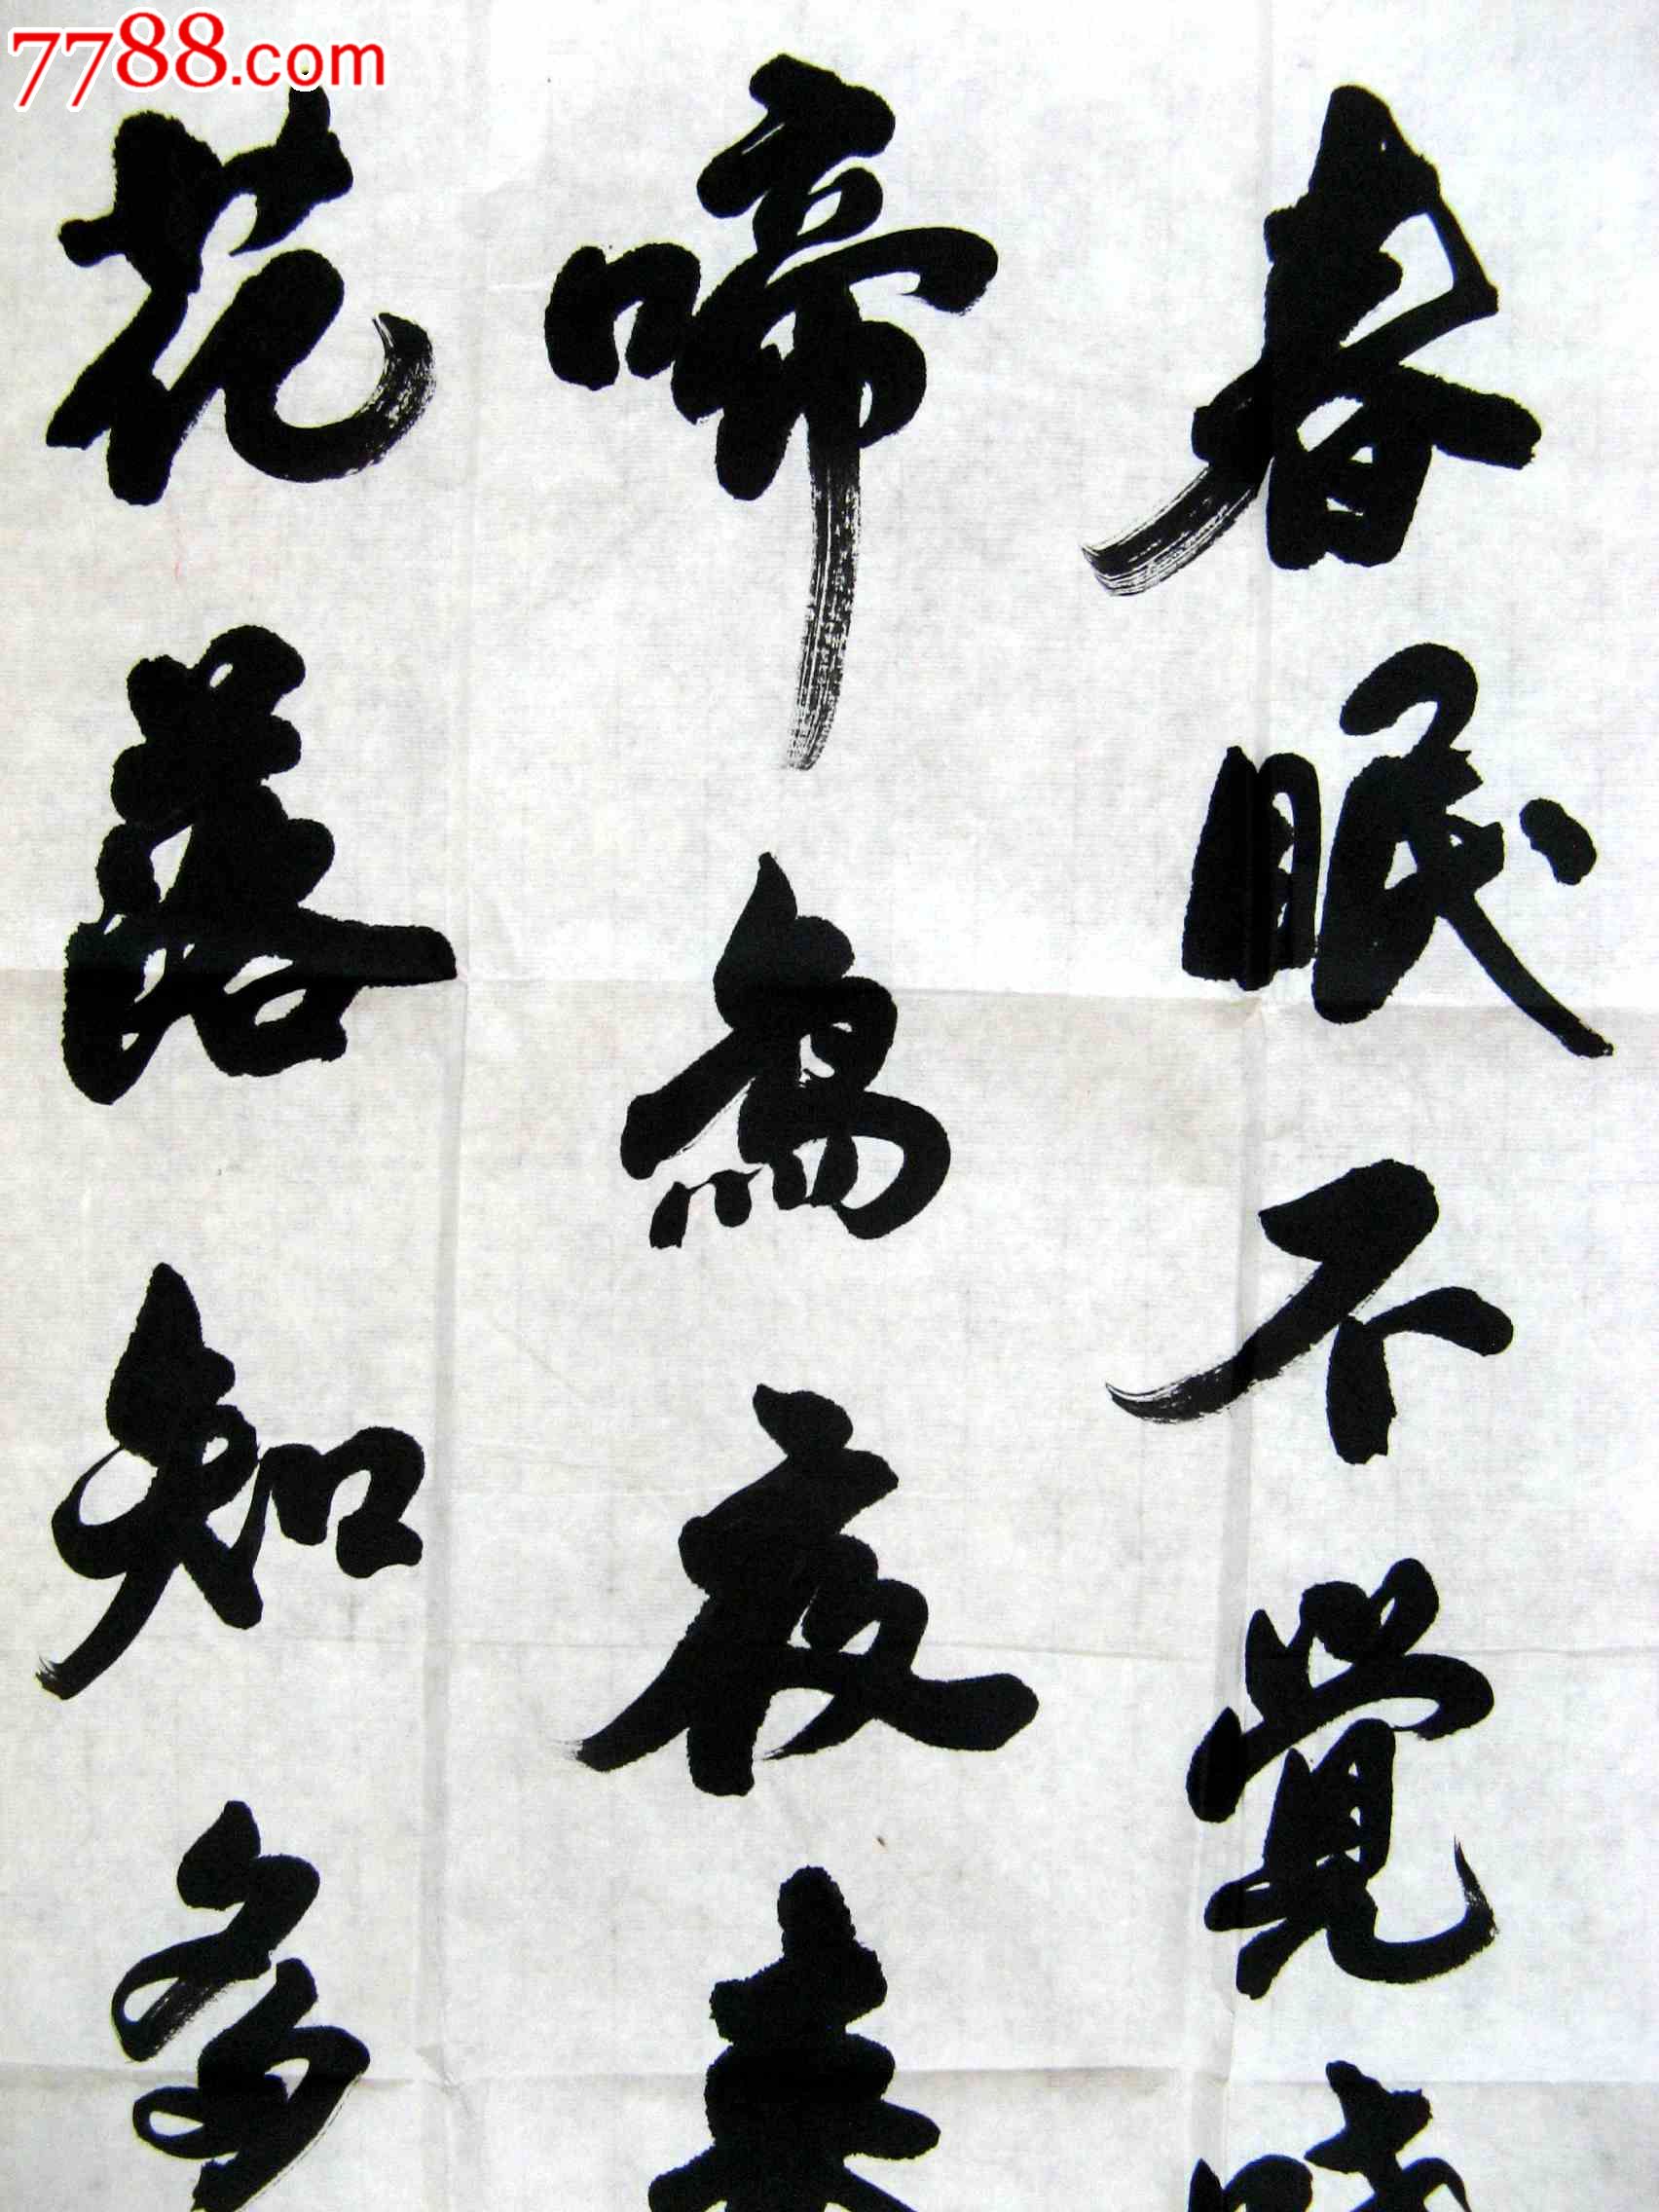 7788.com
春眠不覺
啼鳥夜来
花落知多